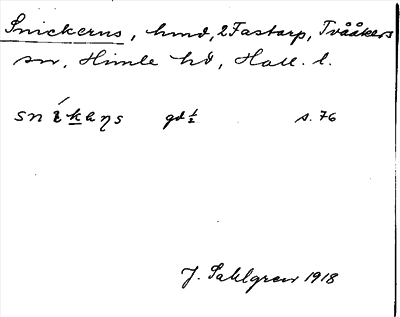 Snickerns, hmd, 2 Fastarp, Tvååkers
sn, Himle hd, Hall. l.
sníkaŋs gd ½ s. 76
J. Sahlgren 1918